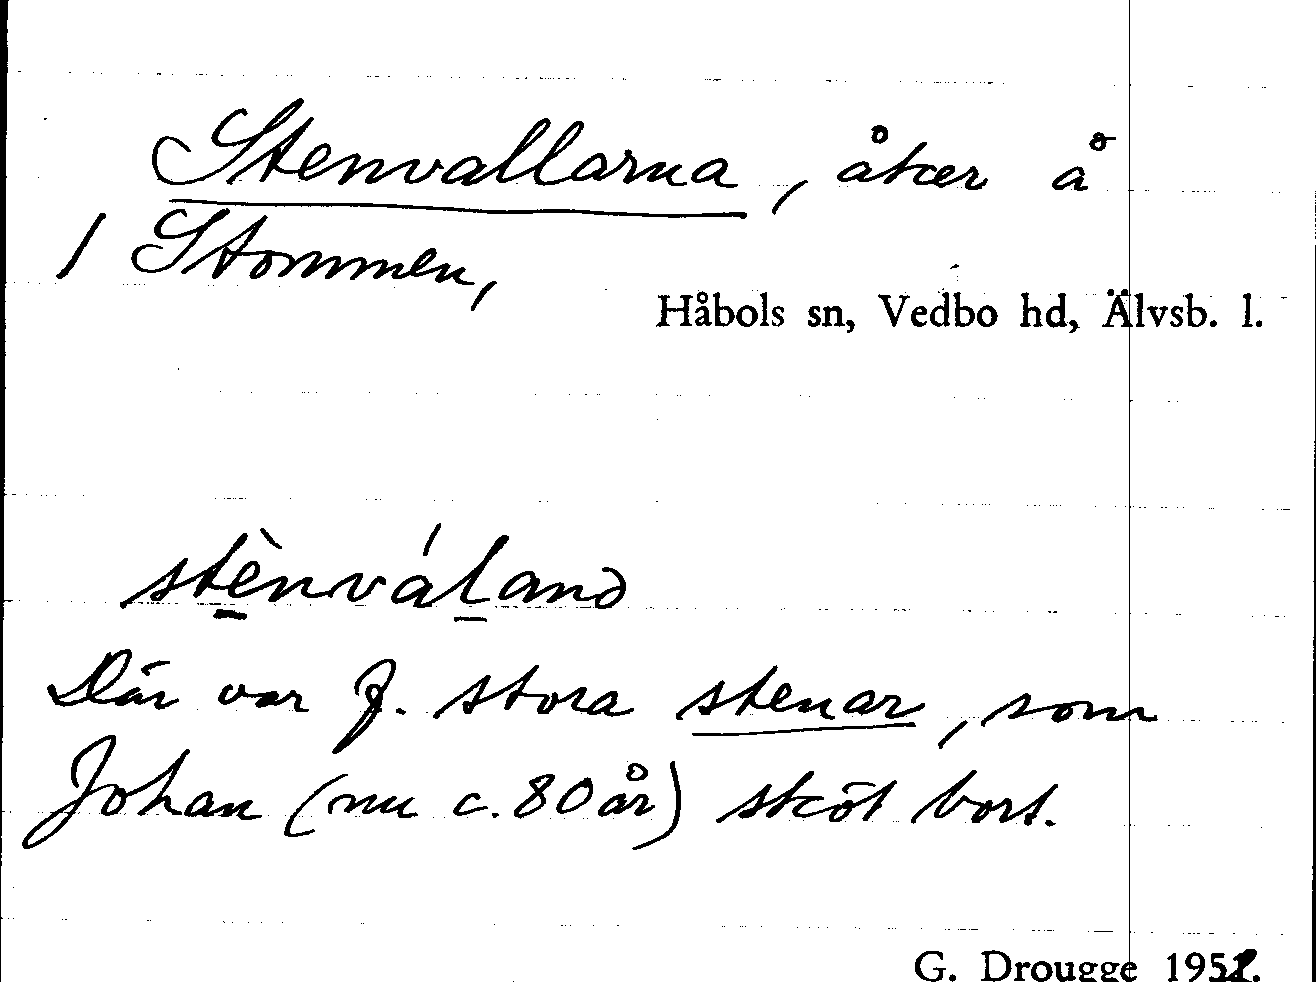 Stenvallarna, åker å
1 Stommen,
Håbols sn, Vedbo hd, Älvsb. l.
stènváland
Där var f. stora stenar, som
Johan (nu c. 80 år) sköt bort.
G. Drougge 195